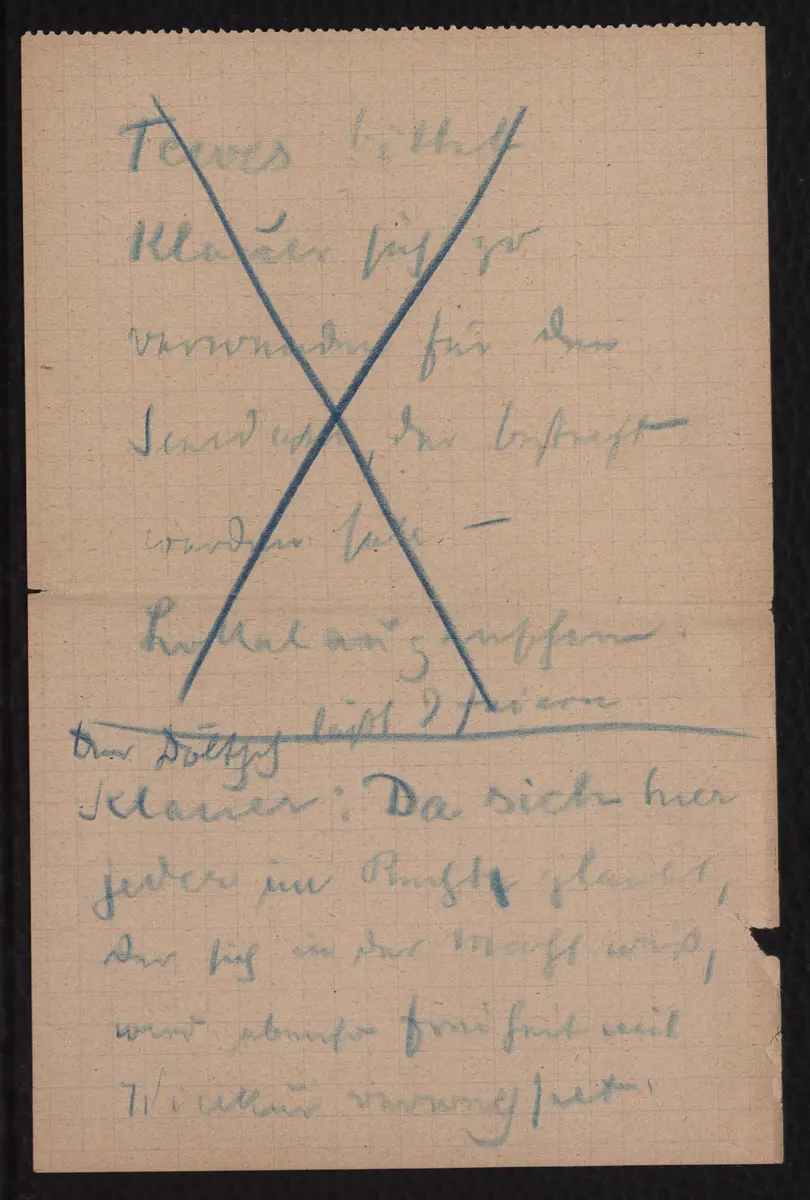 Teeves bittet
Klauer sich zu
verwenden für den
der bestraft
werden soll —
Der Döltsch läßt feiern
Klauer: Da sich hier
jeder im Rechte glaubt,
der sich in der Macht weiß,
wird ebenso Freiheit mit
Willkür verwechselt.